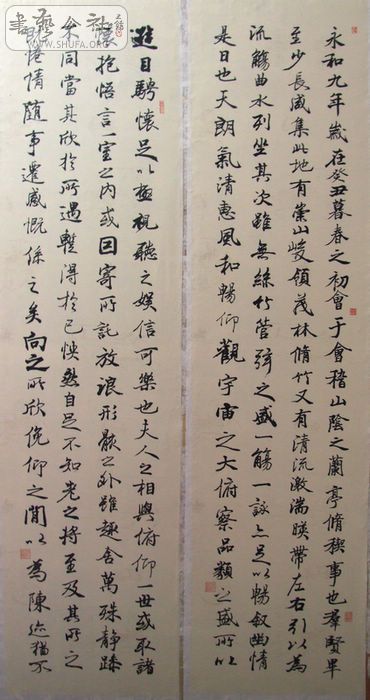 WWW.SHUFA.ORG
永和九年歲在癸丑暮春之初會于會稽山陰之蘭亭脩稧事也羣賢畢
至少長咸集此地有崇山峻領茂林脩竹又有清流激湍暎帶左右引以為
流觴曲水列坐其次雖無絲竹管弦之盛一觴一詠亦足以暢敘幽情
是日也天朗氣清惠風和暢仰觀宇宙之大俯察品類之盛所以
遊目騁懷足以極視聽之娛信可樂也夫人之相與俯仰一世或取諸
懷抱悟言一室之內或因寄所託放浪形骸之外雖趣舍萬殊靜躁
不同當其欣於所遇暫得於己怏然自足不知老之將至及其所之
既惓情隨事遷感慨係之矣向之所欣俛仰之間以為陳迹猶不